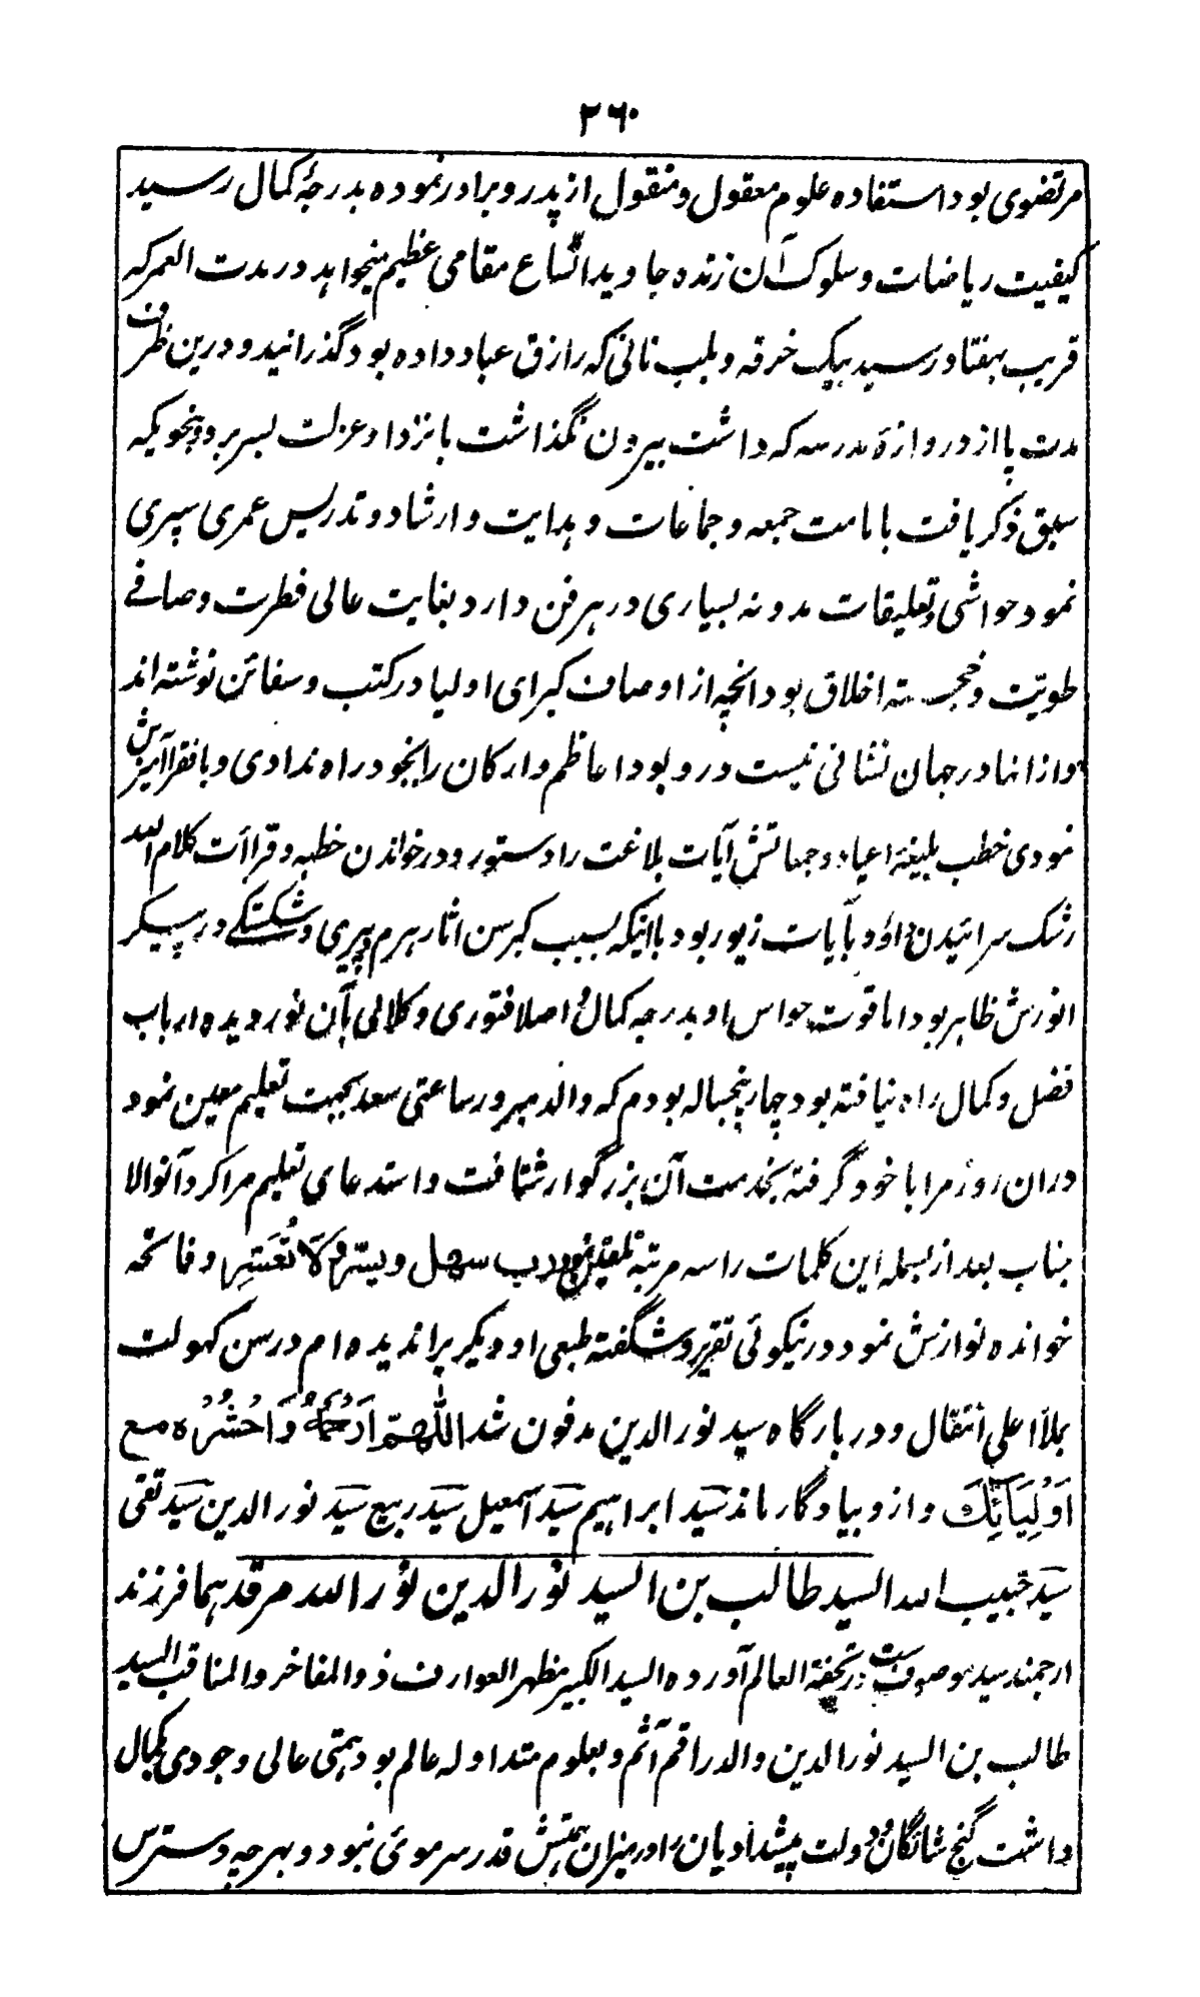 ۲۶۰
مرتضوی بود استفاده علوم معقول و منقول از پدر و برادر نموده بدرجهٔ کمال رسید
کیفیت ریاضات و سلوک آن زنده جاوید اتساع مقامی عظیم میخواهد در مدت العمر که
قریب بهفتاد رسید بیک خرقه و بلب نانی که رازق عباد داده بود گذرانید و درین ظرف
مدت پا از دروازهٔ مدرسه که داشت بیرون نگذاشت بانزوا و عزلت بسر برد و بنحویکه
سبق ذکر یافت بامامت جمعه و جماعات و هدایت و ارشاد و تدریس عمری سپری
نمود حواشی و تعلیقات مدونه بسیاری در هر فن دارد بغایت عالی فطرت و صافے
طویّت و خجسته اخلاق بود انچه از اوصاف کبرای اولیا در کتب و سفائن نوشته اند
و از انها در جهان نشانی نیست در و بود اعاظم و ارکان را بخود راه ندادی و با فقرا آمیزش
نمودی خطب بلیغهٔ اعیاد و جمعاتش آیات بلاغت را دستور و در خواندن خطبه و قراأت کلام الله
رشک سرائیدن داؤد بآیات زبور بود با اینکه بسبب کبر سن اثار هرم و پیری و شکستگے در پیکر
انورش ظاهر بود اما قوت حواس او بدرجه کمال و اصلا فتوری و کلالی بآن نور دیده ارباب
فضل و کمال راه نیافته بود چهار پنجساله بودم که والد مبرور ساعتی سعد بجهت تعلیم معین نمود
دران روز مرا با خود گرفته بخدمت آن بزرگوار شتافت و استدعای تعلیم مرا کرد آنوالا
جناب بعد از بسمله این کلمات را سه مرتبه تلقین نمود رب سهل و یسر و لَا تُعَسِّر و فاتحه
خوانده نوازش نمود در نیکوئی تقریر و شگفته طبعی او دیگر یرا ندیده ام در سن کهولت
بملأ اعلی انتقال و در بارگاه سید نور الدین مدفون شد اللهمّ ارْحَمْهُ وَاحْشُرْه مع
اَوْلِیَائِكَ و از و بیادگار ماند سَید ابراهیم سَید اسمعیل سَید ربیع سَید نور الدین سَید تقی
سَید حبیب الله السید طالب بن السید نور الدین نَوّر الله مرقدهما فرزند
ارجمند سید موصوفست در تحفة العالم آورده السید الکبیر مظهر العوارف ذو المفاخر والمناقب السید
طالب بن السید نور الدین والد راقم آثم و بعلوم متداوله عالم بود همتی عالی و جودی بکمال
داشت گنج شائگان و دولت پیشدادیان را در میزان همتش قدر سر موئی نبود و بهرچه دسترس